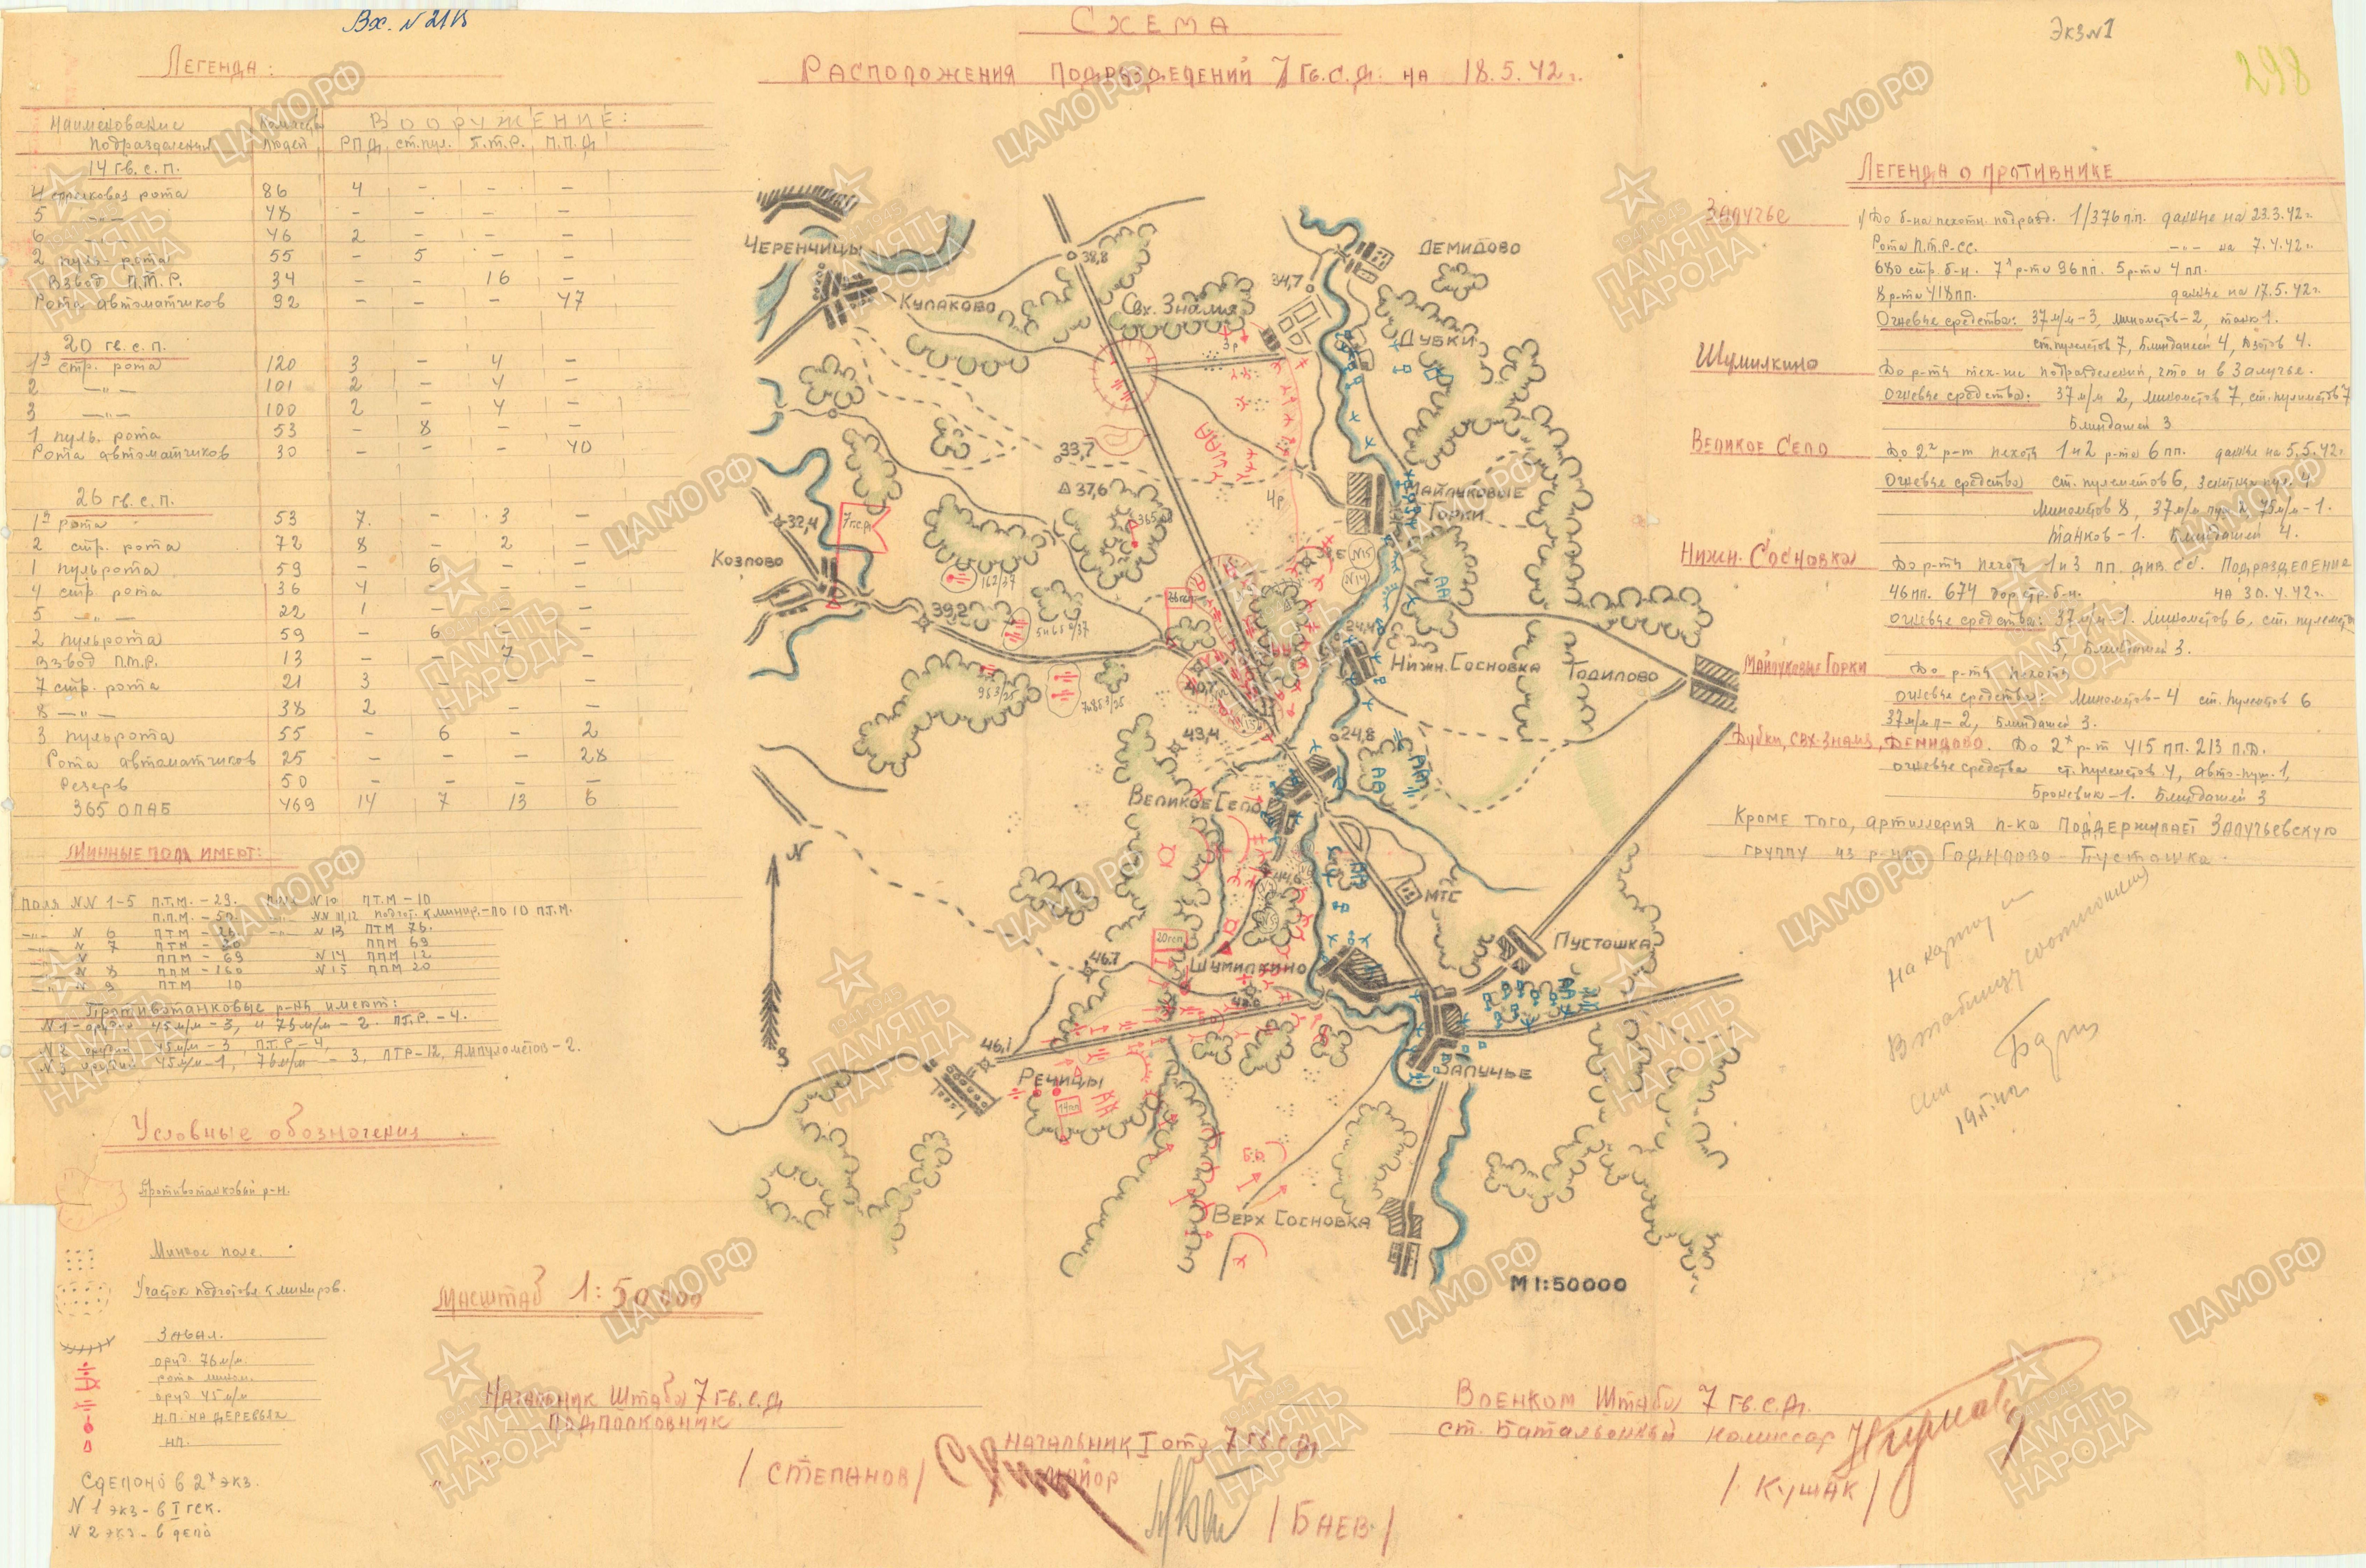 Вх. N 2118
Экз N1
298
Схема
Расположения подразделений 7 Гв.С.Д. на 18.5.42г.
Легенда:
Наименование подразделения Количество людей Вооружение:
РПД ст.пул. П.Т.Р. П.П.Д
14 гв. с. п.
4 стрелковая рота 86 4 – – –
5 –"– 48 – – – –
6 –"– 46 2 – – –
2 пуль-рота 55 – 5 – –
Взвод П.Т.Р. 34 – – 16 –
Рота автоматчиков 92 – – – 47
20 гв. с. п.
1я стр. рота 120 3 – 4 –
2 –"– 101 2 – 4 –
3 –"– 100 2 – 4 –
1 пуль. рота 53 – 8 – –
Рота автоматчиков 30 – – – 40
26 гв. с. п.
1я рота 53 7. – 3 –
2 стр. рота 72 8 – 2 –
1 пульрота 59 – 6 – –
4 стр. рота 36 4 – – –
5 –"– 22 1 – – –
2 пульрота 59 – 6 – –
Взвод П.Т.Р. 13 – – 7 –
7 стр. рота 21 3 – – –
8 –"– 38 2 – – –
3 пульрота 55 – 6 – 2
Рота автоматчиков 25 – – – 28
Резерв 50 – – – –
365 ОПАБ 469 14 7 13 6
Минные поля имеют:
Поля NN 1-5 П.Т.М. – 29. N10 ПТМ – 10
П.П.М. – 50. NN 11,12 подгот. к минир. – по 10 П.Т.М.
–"– N 6 ПТМ – N13 ПТМ 76.
–"– N 7 ПТМ – ППМ 69
ППМ – 69 N14 ППМ 12
–"– N 8 ППМ – 160 N15 ППМ 20
–"– N 9 ПТМ 10
Противотанковые р-ны имеют:
N1 – орудий 45м/м – 3, и 76м/м – 2. ПТР. – 4.
N2 орудий 45м/м – 3, П.Т.Р – 4,
N3 орудий 45м/м – 1, 76м/м – 3, ПТР – 12, Ампулометов – 2.
Условные обозначения
Противотанковый р-н.
Минное поле.
Участок подготовл. к миниров.
Завал.
оруд. 76м/м.
рота мином.
оруд 45м/м
Н.П. на деревьях
НП.
Сделано в 2х экз.
N 1 экз – в I гск.
N 2 экз – в дело
Масштаб 1:50000
Черенчицы
Кулаково
38,8
Свх. Знамя
Демидово
34,7
Дубки
3р
33,7
37,6
4р
Майлуковые Горки
32,4
7гсд
Козлово
39,2
N15
N14
24,4
Нижн. Сосновка
Годилово
40,7
43,4
24,8
Великое Село
44,6
МТС
N
S
20гсп
46.7
Шумилкино
Пустошка
46,1
Речицы
14гп
Залучье
Б.О.
Верх Сосновка
М 1:50000
Легенда о противнике
Залучье 1/ До б-на пехотн. подразд. 1/376 п.п. данные на 23.3.42г.
Рота П.Т.Р-СС. –"– на 7.4.42г.
680 стр. б-н. 7я р-та 96пп. 5 р-та 4 пп.
8 р-та 418пп. данные на 17.5.42г.
Огневые средства: 37м/м – 3, минометов – 2, танк 1.
ст.пулеметов 7, Блиндажей 4, Дзотов 4.
Шумилкино До р-ты тех-же подразделений, что и в Залучье.
Огневые средства: 37м/м 2, минометов 7, ст.пулеметов 7
Блиндажей 3
Великое Село До 2х р-т пехоты 1 и 2 р-та 6пп. данные на 5.5.42г.
Огневые средства ст. пулеметов 6, зенитных пул. 4
Минометов 8, 37м/м пуш 2, 75м/м – 1.
Танков – 1. Блиндажей 4.
Нижн. Сосновка До р-ты пехоты 1 и 3 пп. див. СС. Подразделение
46пп. 674 дор.стр. б-н. на 30.4.42г.
Огневые средства: 37м/м – 1. Минометов 6, ст. пулеметов
5, Блиндажей 3.
Майлуковые Горки До р-ты пехоты
огневые средства: Минометов – 4 ст. пулеметов 6
37м/м п – 2, Блиндажей 3.
Дубки, свх. Знамя, Демидово. До 2х р-т 415 пп. 213 П.Д.
огневые средства ст. пулеметов 4, авто-пуш. 1,
Броневик – 1. Блиндажей 3
Кроме того, артиллерия п-ка поддерживает Залучьевскую
группу из р-на Годилово – Пустошка.
на карту и
в таблицу соотношения
сил
Начальник Штаба 7 Гв.С.Д
Подполковник
/Степанов/
Начальник I отд 7 Гв.С.Д
Майор
/Баев/
Военком Штаба 7 Гв.С.Д.
ст. Батальонный комиссар
/Кушак/
ЦАМО РФ
ПАМЯТЬ НАРОДА
1941-1945